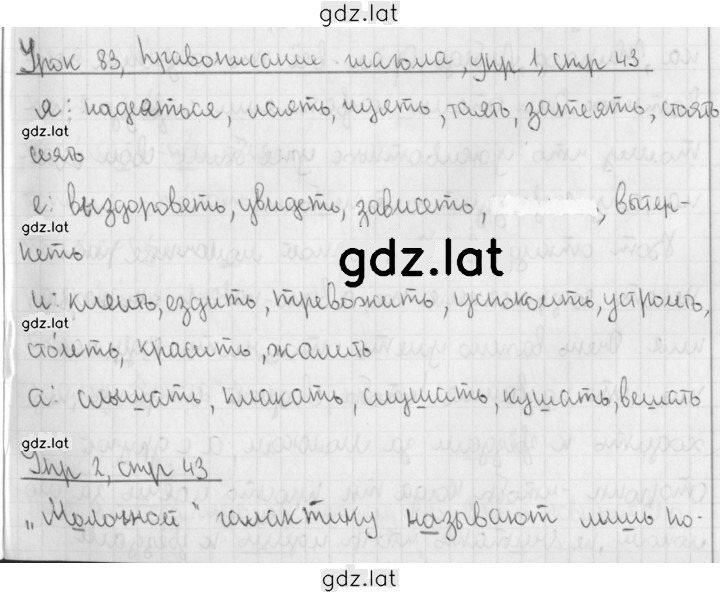 gdz.lat
Урок 83, Правописание глагола, упр 1, стр 43
я: надеяться, лаять, идять, таять, затеять, стоять
gdz.lat
сеять
е: выздороветь, увидеть, зависеть, , вытер-
gdz.lat
петь
gdz.lat
и: клеить, ездить, тревожить, успокоить, устроить,
gdz.lat
стоить, красить, жалить
а: слышать, плакать, слушать, кушать, вешать
gdz.lat
Упр 2, стр 43
"Молочной" галактику называют лишь по-
gdz.lat